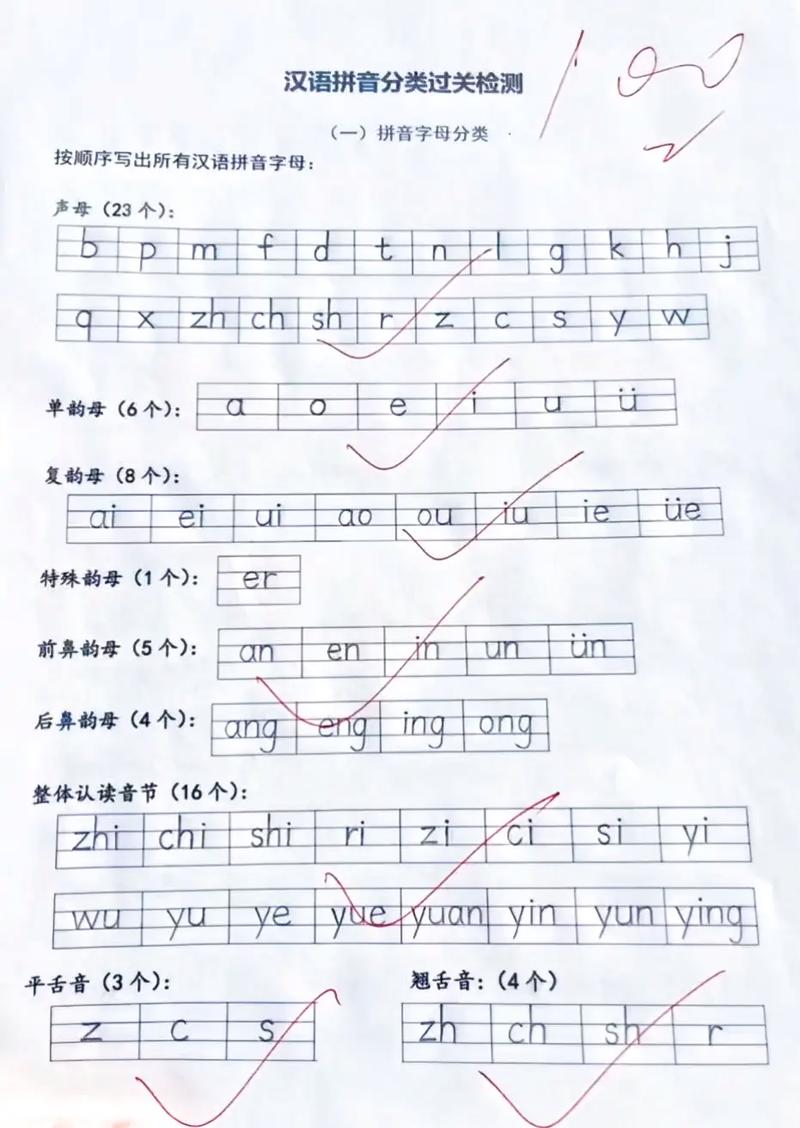 100
汉语拼音分类过关检测
（一）拼音字母分类
按顺序写出所有汉语拼音字母：
声母（23 个）：
b p m f d t n l g k h j
q x zh ch sh r z c s y w
单韵母（6 个）： a o e i u ü
复韵母（8 个）：
ai ei ui ao ou iu ie üe
特殊韵母（1 个）： er
前鼻韵母（5 个）： an en in un ün
后鼻韵母（4 个）： ang eng ing ong
整体认读音节（16 个）：
zhi chi shi ri zi ci si yi
wu yu ye yue yuan yin yun ying
平舌音（3 个）： 翘舌音：（4 个）
z c s zh ch sh r